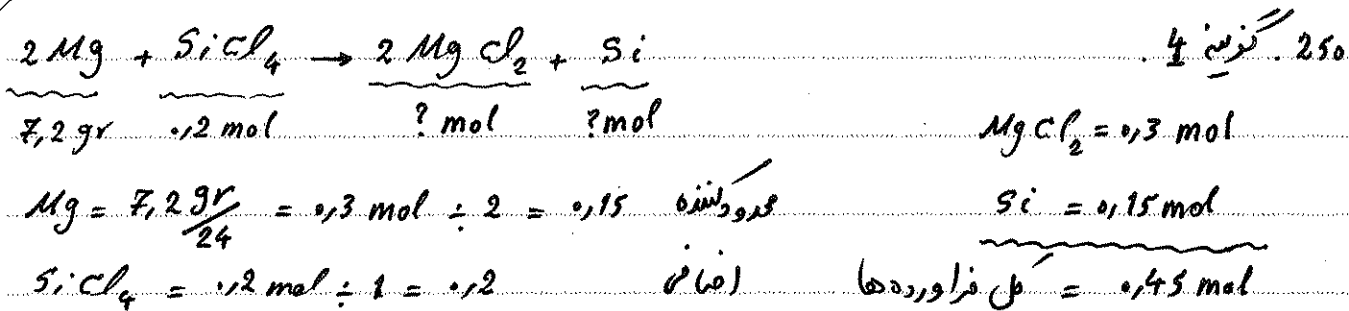 250. گزینه 4.
2 Mg + SiCl₄ → 2 MgCl₂ + Si
7,2 gr 0,2 mol ? mol ? mol
MgCl₂ = 0,3 mol
Mg = 7,2 gr/24 = 0,3 mol ÷ 2 = 0,15 محدودکننده
Si = 0,15 mol
SiCl₄ = 0,2 mol ÷ 1 = 0,2 اضافی
کل فراورده‌ها = 0,45 mol